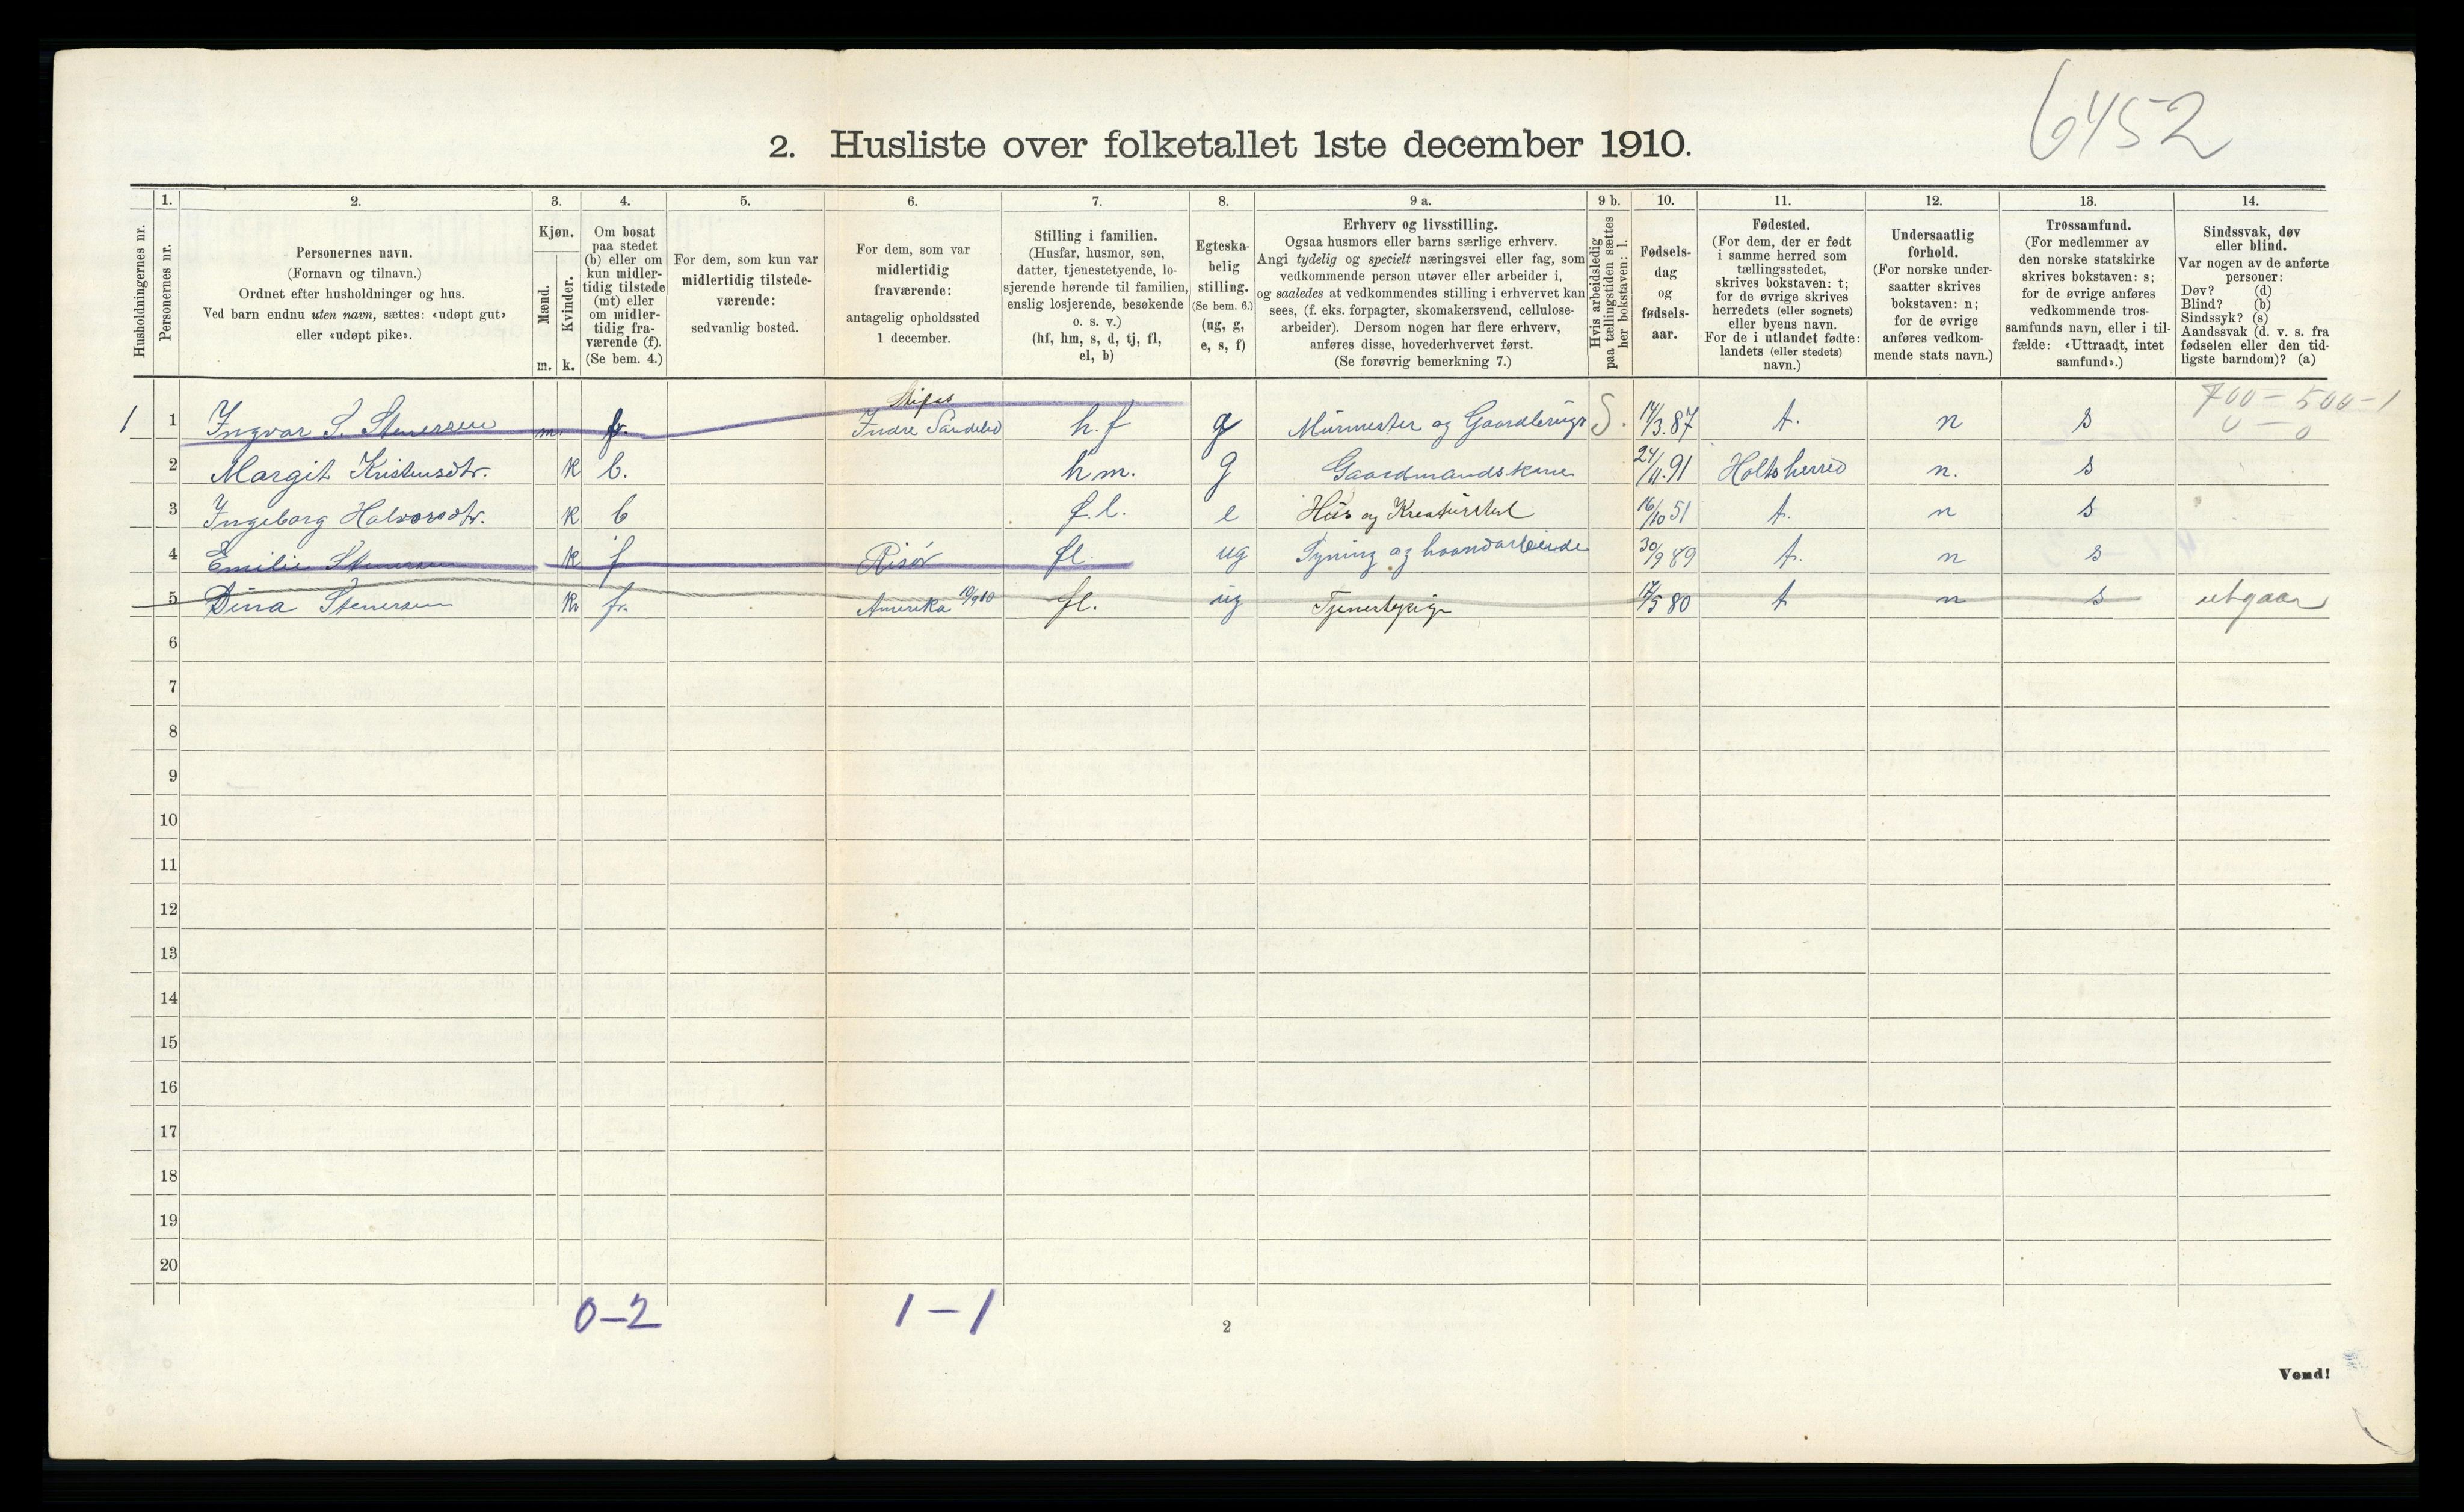 6452
2. Husliste over folketallet 1ste december 1910.
Husholdningernes nr.
1.
Personernes nr.
2.
Personernes navn.
(Fornavn og tilnavn.)
Ordnet efter husholdninger og hus.
Ved barn endnu uten navn, sættes: «udøpt gut»
eller «udøpt pike».
3.
Kjøn.
Mænd.
Kvinder.
m. k.
4.
Om bosat
paa stedet
(b) eller om
kun midler-
tidig tilstede
(mt) eller
om midler-
tidig fra-
værende (f).
(Se bem. 4.)
5.
For dem, som kun var
midlertidig tilstede-
værende:
sedvanlig bosted.
6.
For dem, som var
midlertidig
fraværende:
antagelig opholdssted
1 december.
7.
Stilling i familien.
(Husfar, husmor, søn,
datter, tjenestetyende, lo-
sjerende hørende til familien,
enslig losjerende, besøkende
o. s. v.)
(hf, hm, s, d, tj, fl,
el, b)
8.
Egteska-
belig
stilling.
(Se bem. 6.)
(ug, g,
e, s, f)
9 a.
Erhverv og livsstilling.
Ogsaa husmors eller barns særlige erhverv.
Angi tydelig og specielt næringsvei eller fag, som
vedkommende person utøver eller arbeider i,
og saaledes at vedkommendes stilling i erhvervet kan
sees, (f. eks. forpagter, skomakersvend, cellulose-
arbeider). Dersom nogen har flere erhverv,
anføres disse, hovederhvervet først.
(Se forøvrig bemerkning 7.)
9 b.
Hvis arbeidsledig
paa tællingstiden sættes
her bokstaven: l.
10.
Fødsels-
dag
og
fødsels-
aar.
11.
Fødested.
(For dem, der er født
i samme herred som
tællingsstedet,
skrives bokstaven: t;
for de øvrige skrives
herredets (eller sognets)
eller byens navn.
For de i utlandet fødte:
landets (eller stedets)
navn.)
12.
Undersaatlig
forhold.
(For norske under-
saatter skrives
bokstaven: n;
for de øvrige
anføres vedkom-
mende stats navn.)
13.
Trossamfund.
(For medlemmer av
den norske statskirke
skrives bokstaven: s;
for de øvrige anføres
vedkommende tros-
samfunds navn, eller i til-
fælde: «Uttraadt, intet
samfund».)
14.
Sindssvak, døv
eller blind.
Var nogen av de anførte
personer:
Døv? (d)
Blind? (b)
Sindssyk? (s)
Aandssvak (d. v. s. fra
fødselen eller den tid-
ligste barndom)? (a)
700 - 500 - 1
0 - 0
1 1 Ingvar S. Stenersen m. f. Indre Søndeled h.f g Murmester og S. 14/3.87 t. n s
2 Margit Kristensdtr. k b. h.m. g Gaardmandskone 24/11.91 Holtsherred n. s
3 Ingeborg Halvorsdtr. k b f.l. e Hus og Kreaturstel 16/10 51 t. n s
4 Emilie Stenersen k f Risør fl. ug Syning og haandarbeide 30/9 89 t. n s
5 Dina Stenersen k f. Amerika 10/9 10 fl. ug Tjenestepige 17/5 80 t n s utgaar
6
7
8
9
10
11
12
13
14
15
16
17
18
19
20
0-2 1-1
2
Vend!